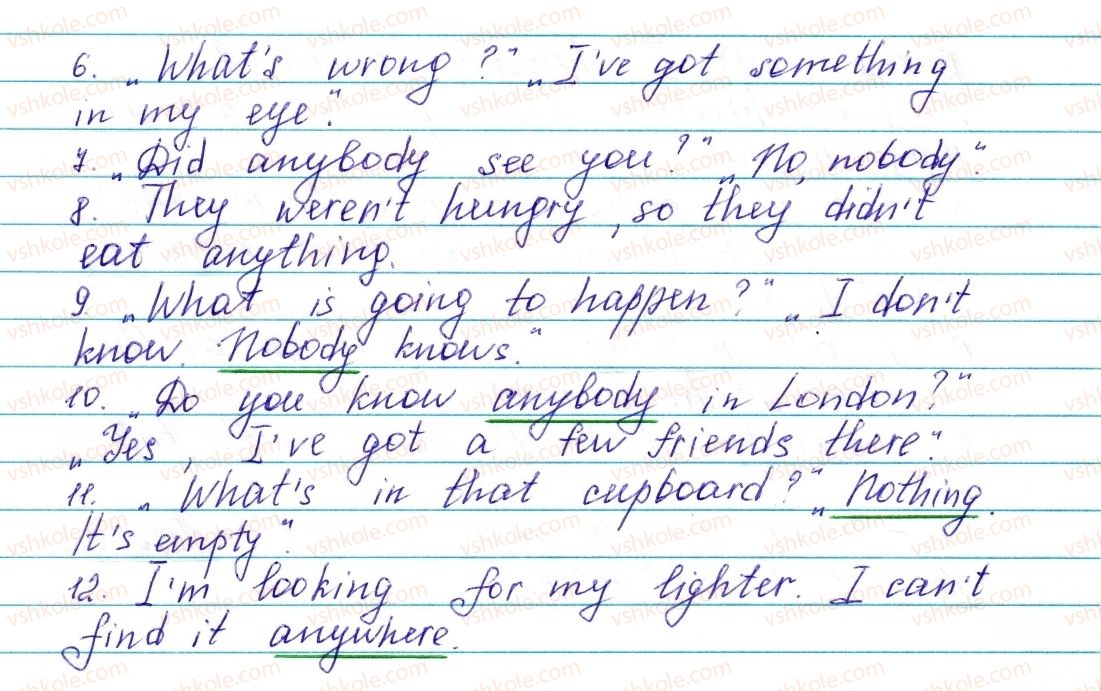 6. „What's wrong?" „I've got something
in my eye".
7. „Did anybody see you?" „No, nobody".
8. They weren't hungry, so they didn't
eat anything.
9. „What is going to happen?" „I don't
know. Nobody knows."
10. „Do you know anybody in London?"
„Yes, I've got a few friends there".
11. „What's in that cupboard?" „Nothing.
It's empty".
12. I'm looking for my lighter. I can't
find it anywhere.
vshkole.com